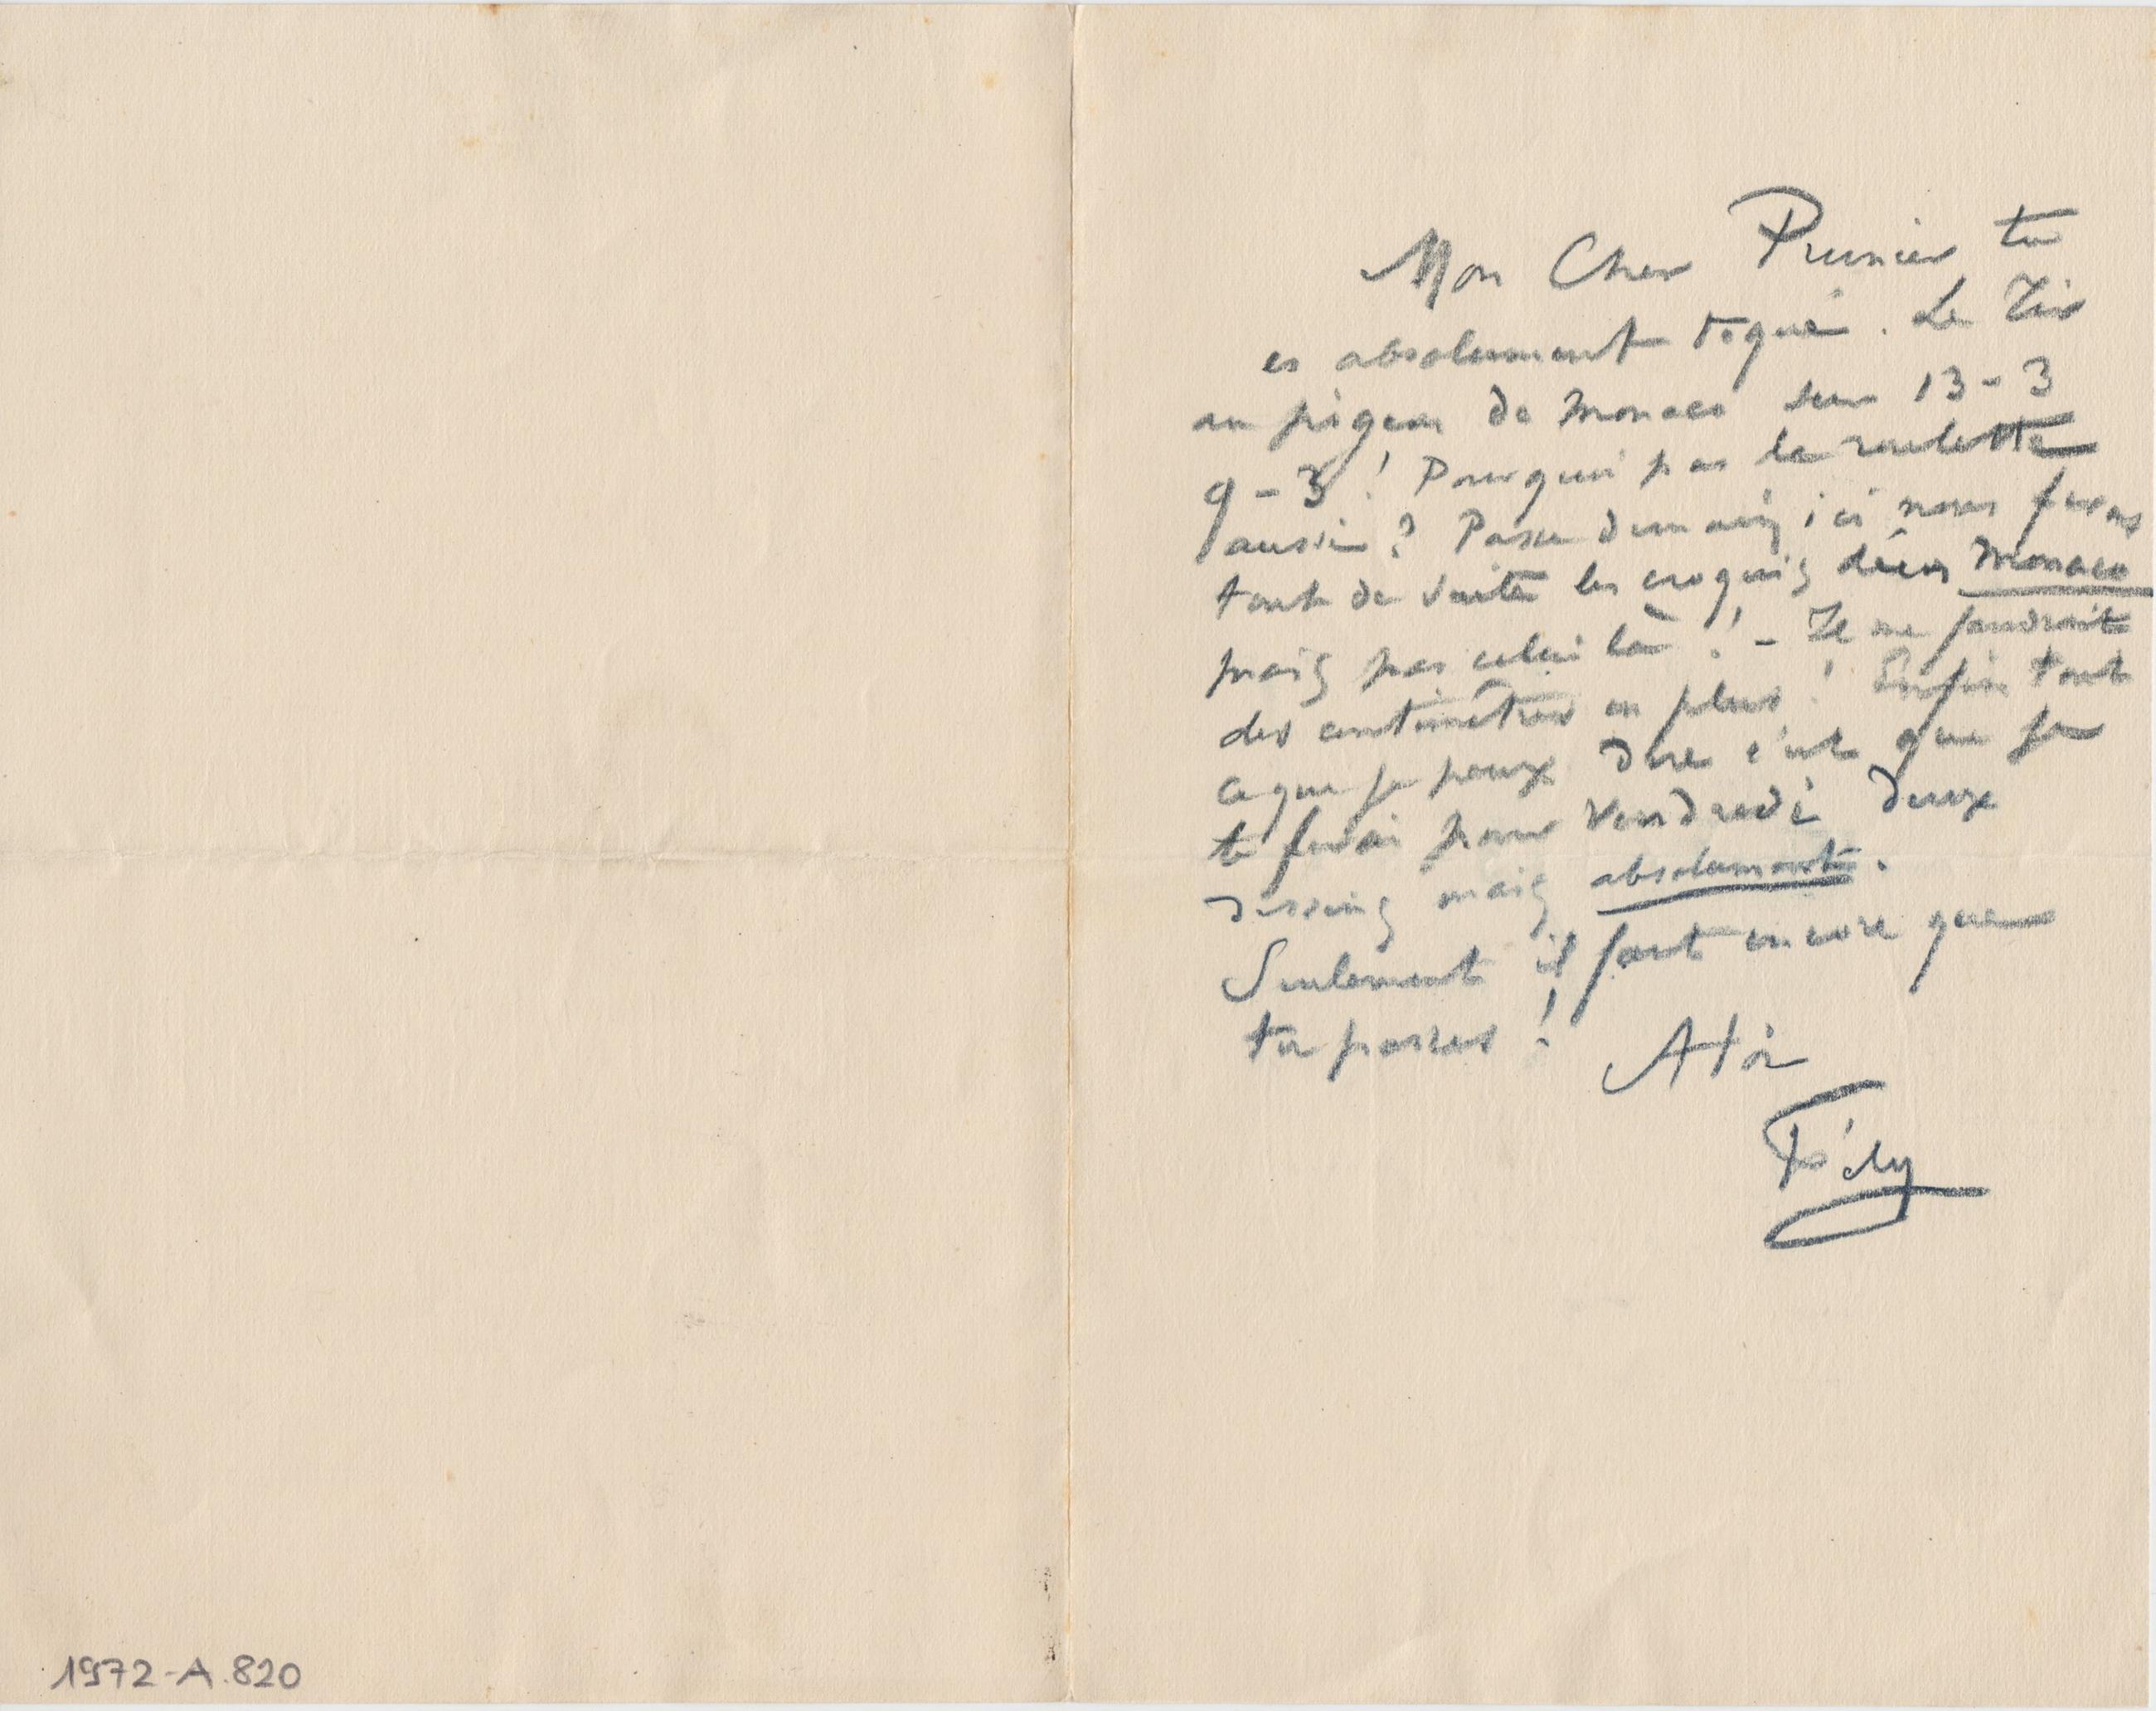 Mon Cher Prunier tu
es absolument toqué. Le Tir
au pigeon de Monaco sur 13-3
9-3! Pourquoi pas la roulette
aussi? Passe demain ici nous ferons
tout de suite les croquis Monaco
mais pas celui là! - Il me faudrait
des centimètres en plus! Enfin tout
ce que je peux dire c'est que je
te ferai pour Vendredi deux
dessins mais absolument.
Seulement il faut encore que
tu passes! A toi
Fély
1972-A.820